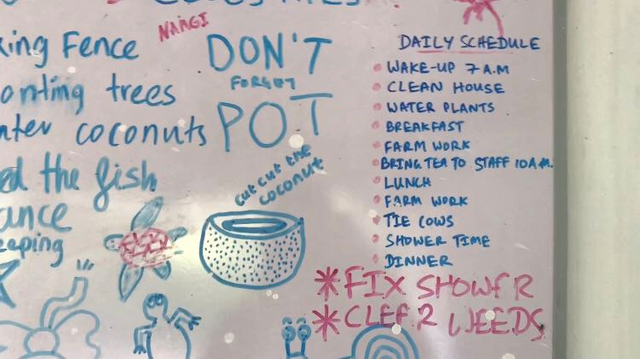 NARGI
Fence
trees
coconuts
the fish
DON'T
FORGET
POT
cut cut the
coconut
DAILY SCHEDULE
WAKE-UP 7 A.M
CLEAN HOUSE
WATER PLANTS
BREAKFAST
FARM WORK
BRING TEA TO STAFF 10A.M.
LUNCH
FARM WORK
TIE COWS
SHOWER TIME
DINNER
* FIX SHOWER
* CLEAR WEEDS